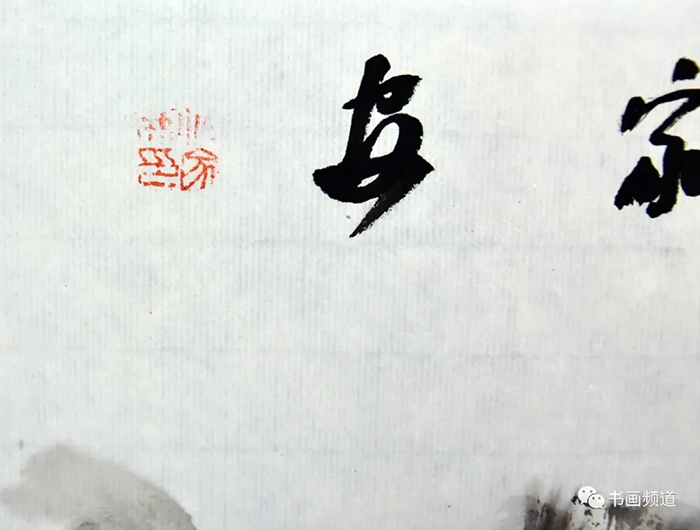 家安
书画频道